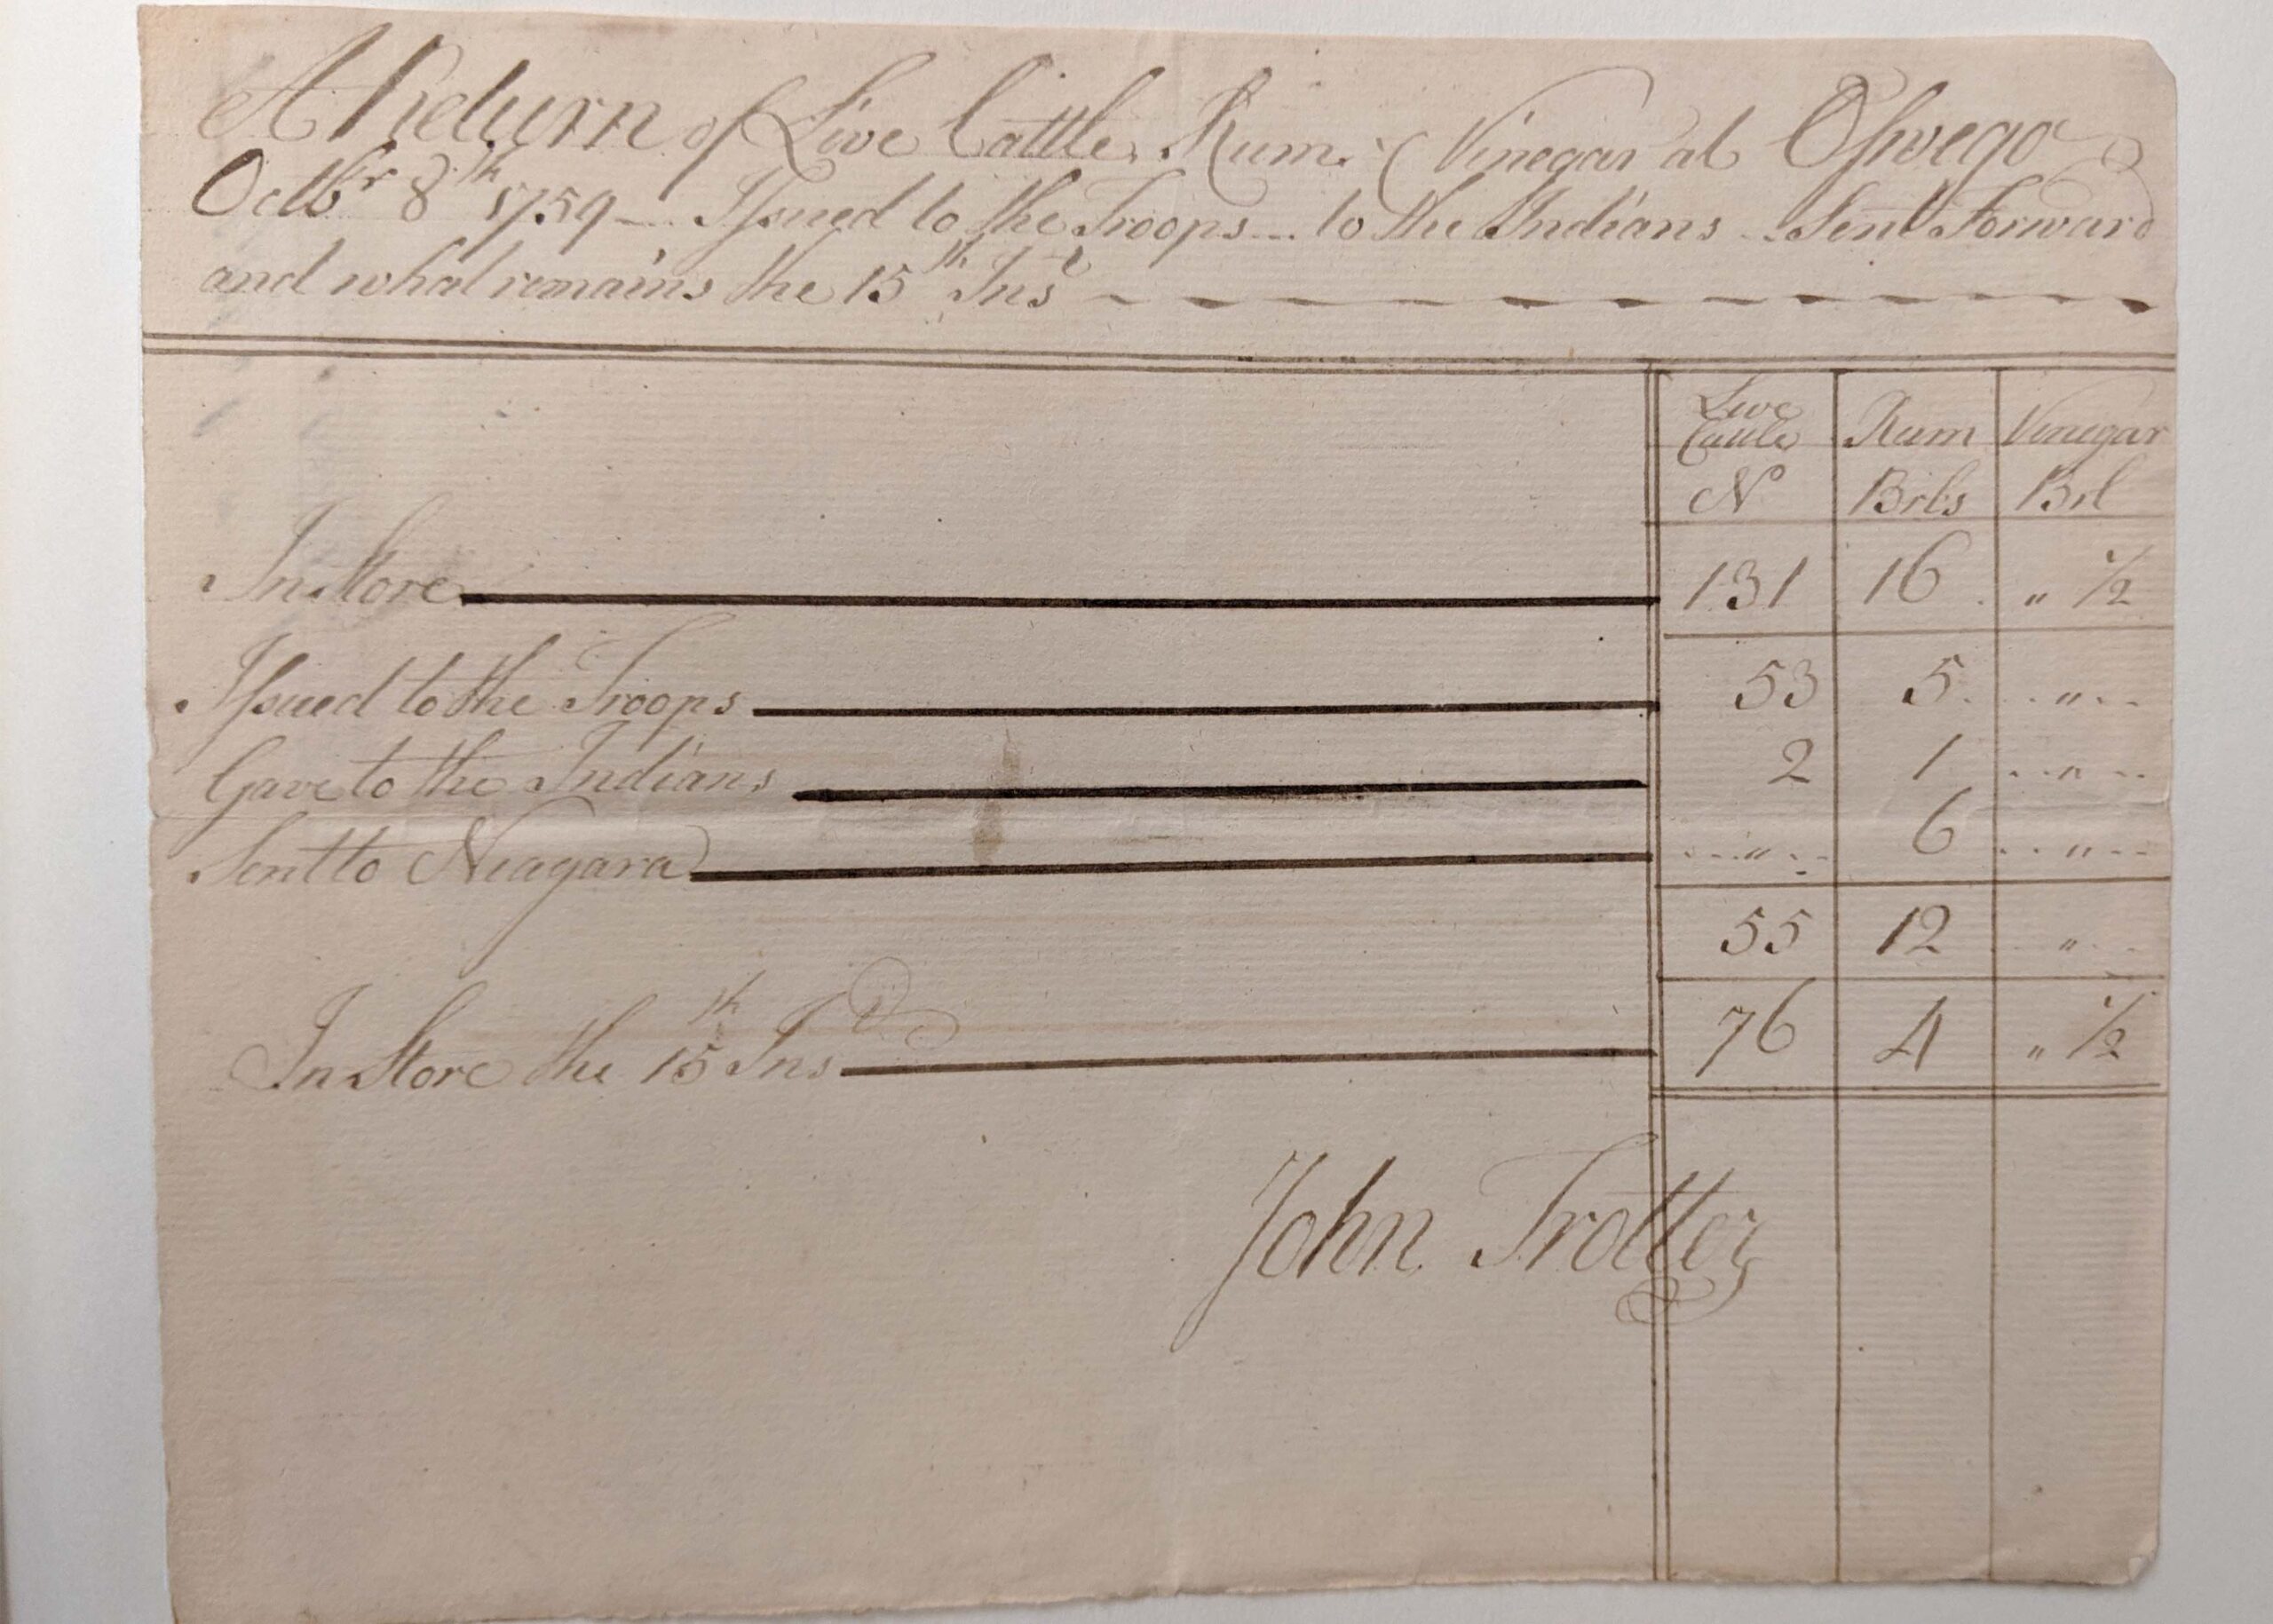 A Return of Live Cattle, Rum & Vinegar at Oſwego
Octbr 8th 1759 — Iſsued to the Troops -- to the Indians -- Sent Forward
and what remains the 15th Inst - - - - - - - - - - - -
Live Cattle | Rum | Vinegar
No | Brls | Brl
In Store — 131 | 16 | " 1/2
Iſsued to the Troops — 53 | 5 | "
Gave to the Indians — 2 | 1 | "
Sent to Neagara — " | 6 | "
55 | 12 | "
In Store the 15th Inst — 76 | 4 | " 1/2
John Trotter